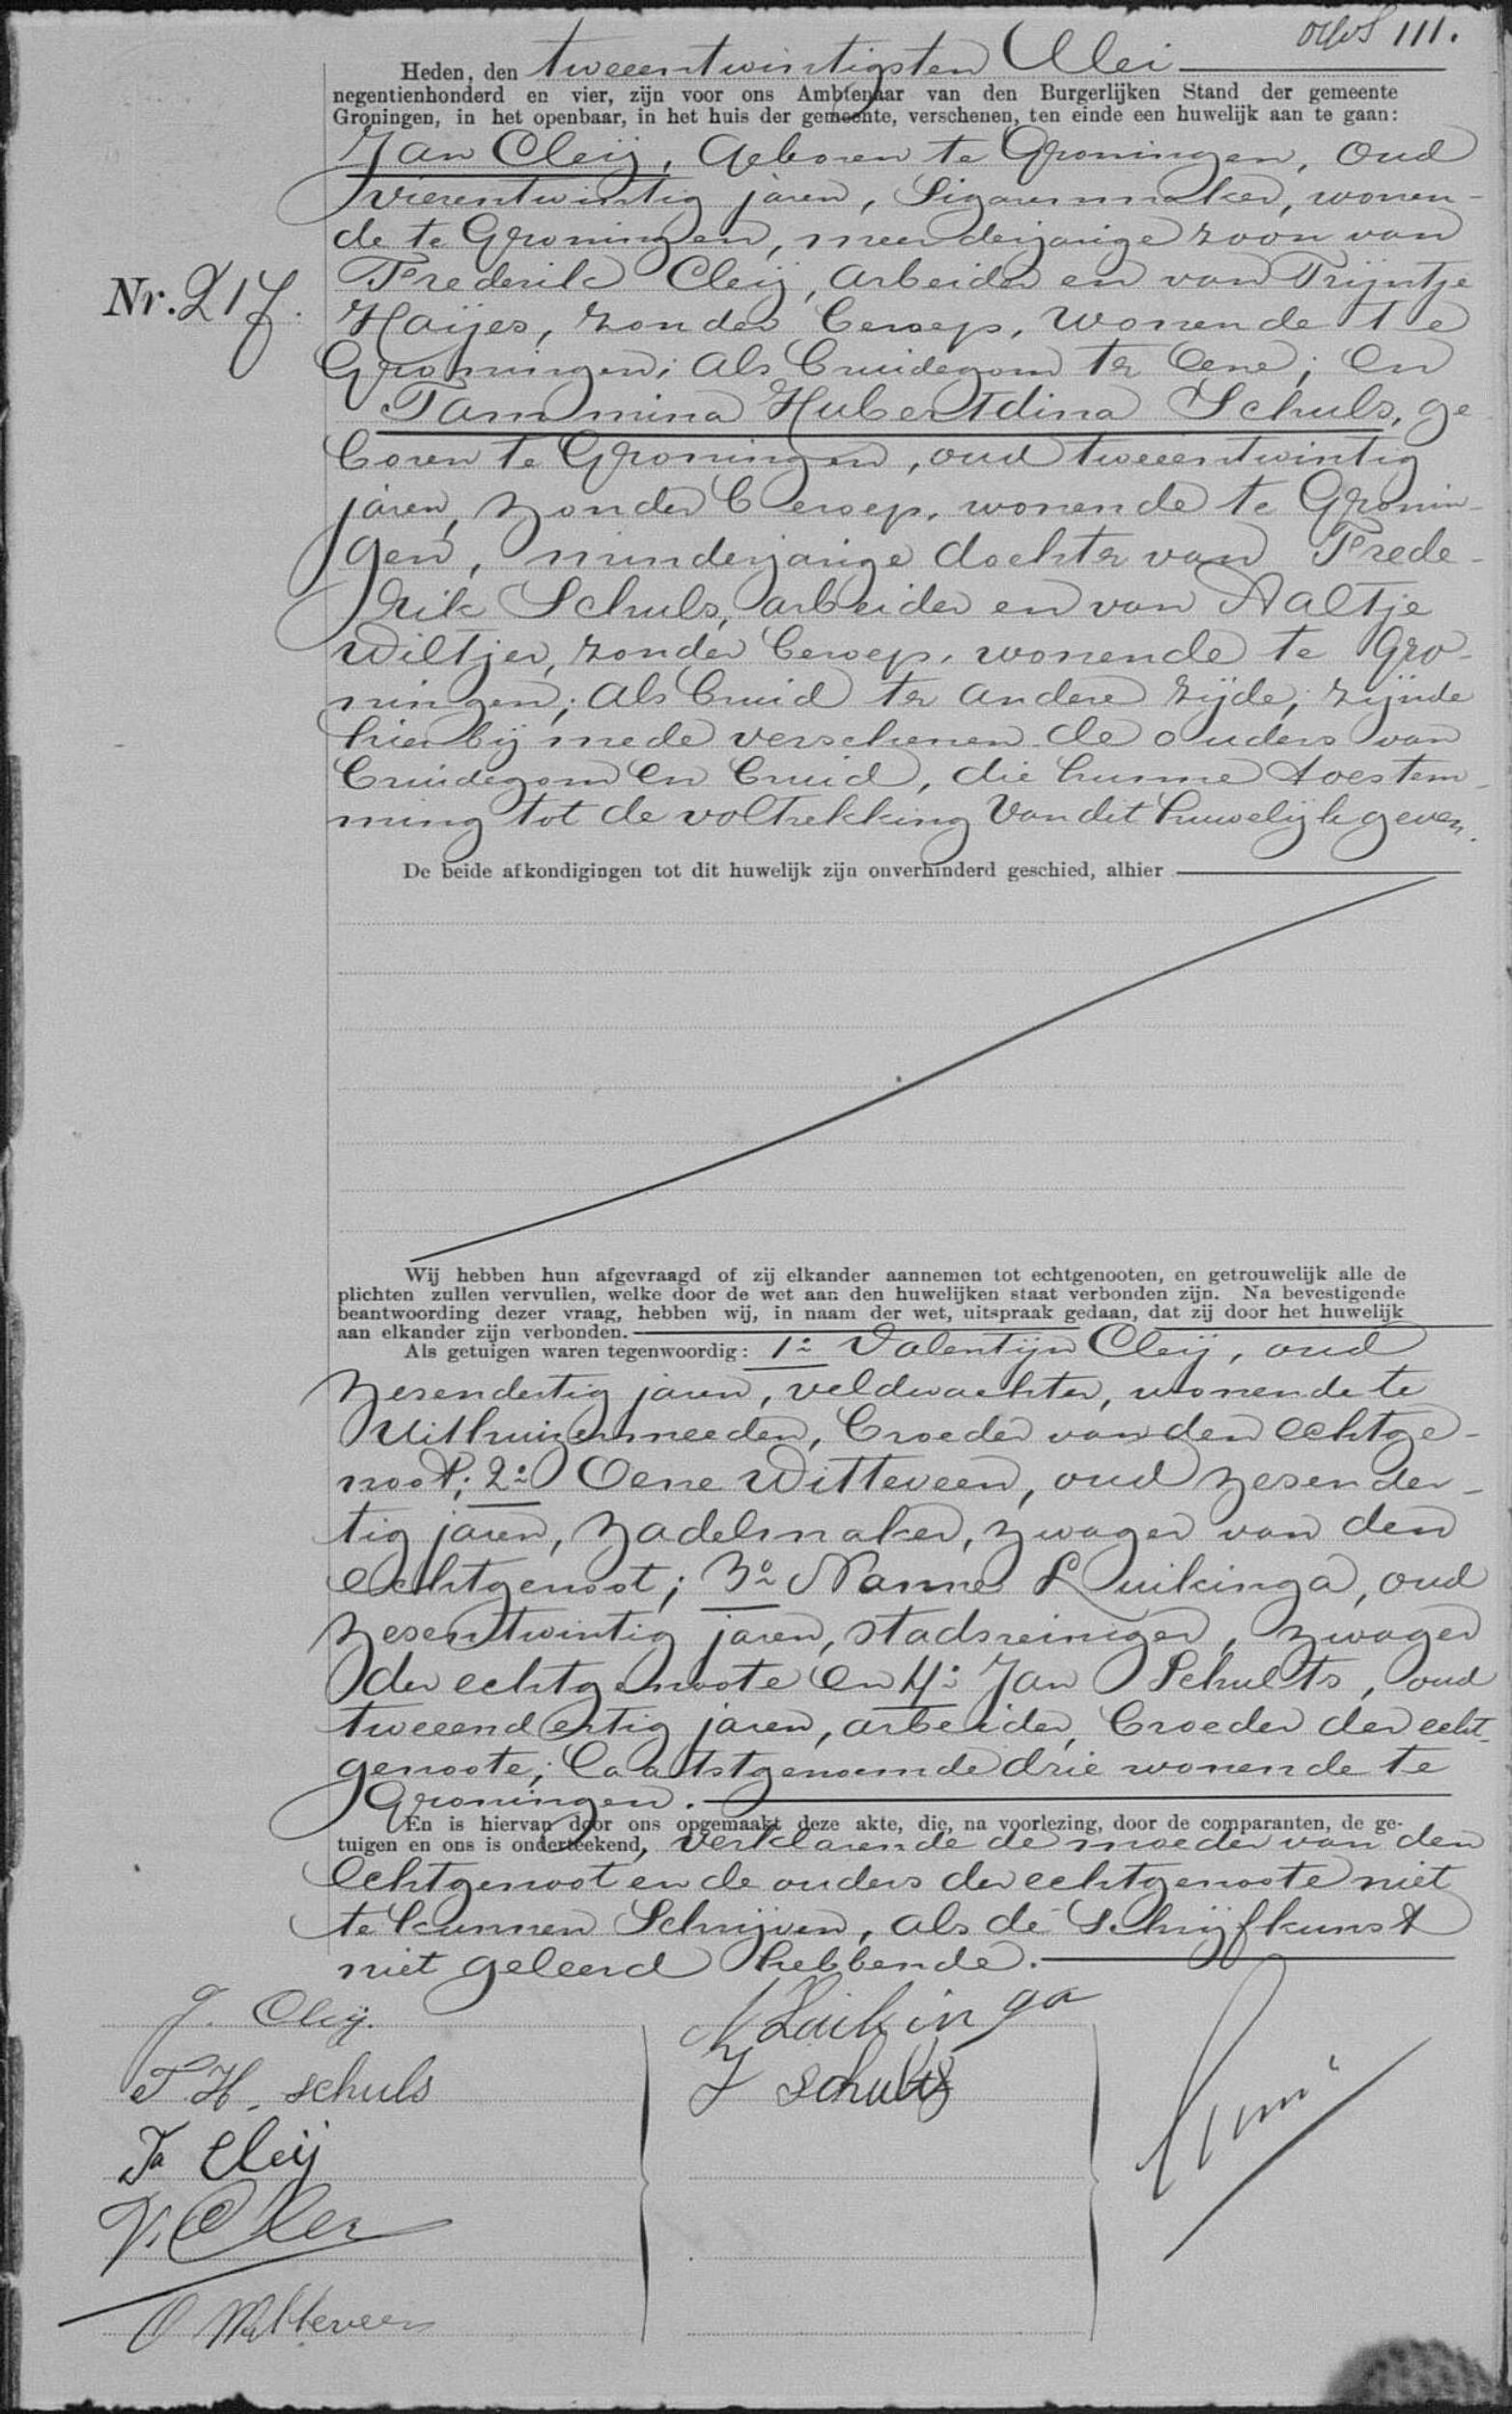 111.
Heden, den tweeentwintigsten Mei
negentienhonderd en vier, zijn voor ons Ambtenaar van den Burgerlijken Stand der gemeente
Groningen, in het openbaar, in het huis der gemeente, verschenen, ten einde een huwelijk aan te gaan:
Jan Cleij, geboren te Groningen, oud
vierentwintig jaren, Sigarenmaker, wonen-
de te Groningen, meerderjarige zoon van
Nr. 217.
Frederik Cleij, arbeider en van Trijntje
Haijes, zonder beroep, wonende te
Groningen; als bruidegom ter eene; en
Tammina Hubertdina Schuls, ge
boren te Groningen, oud tweeentwintig
jaren, zonder beroep, wonende te Gronin-
gen, minderjarige dochter van Frede-
rik Schuls, arbeider en van Aaltje
Wiltjer, zonder beroep, wonende te Gro-
ningen; als bruid ter andere zijde; zijnde
hierbij mede verschenen de ouders van
bruidegom en bruid, die hunne toestem-
ming tot de voltrekking van dit huwelijk geven.
De beide afkondigingen tot dit huwelijk zijn onverhinderd geschied, alhier
Wij hebben hun afgevraagd of zij elkander aannemen tot echtgenooten, en getrouwelijk alle de
plichten zullen vervullen, welke door de wet aan den huwelijken staat verbonden zijn. Na bevestigende
beantwoording dezer vraag, hebben wij, in naam der wet, uitspraak gedaan, dat zij door het huwelijk
aan elkander zijn verbonden.
Als getuigen waren tegenwoordig: 1o Valentijn Cleij, oud
zesendertig jaren, veldwachter, wonende te
Uithuizermeeden, broeder van den echtge-
noot; 2o Oene Witteveen, oud zesender-
tig jaren, zadelmaker, zwager van den
echtgenoot; 3o Nanne Luikinga, oud
zesentwintig jaren, stadsreiniger, zwager
der echtgenoote en 4o Jan Schults, oud
tweeendertig jaren, arbeider, broeder der echt-
genoote; laatstgenoemde drie wonende te
Groningen.
En is hiervan door ons opgemaakt deze akte, die, na voorlezing, door de comparanten, de ge-
tuigen en ons is onderteekend, verklarende de moeder van den
echtgenoot en de ouders der echtgenoote niet
te kunnen Schrijven, als de Schrijfkunst
niet geleerd hebbende.
J. Cleij.
T H. schuls
Cleij
V. Cleij
O Witteveen
N Luikinga
J schults